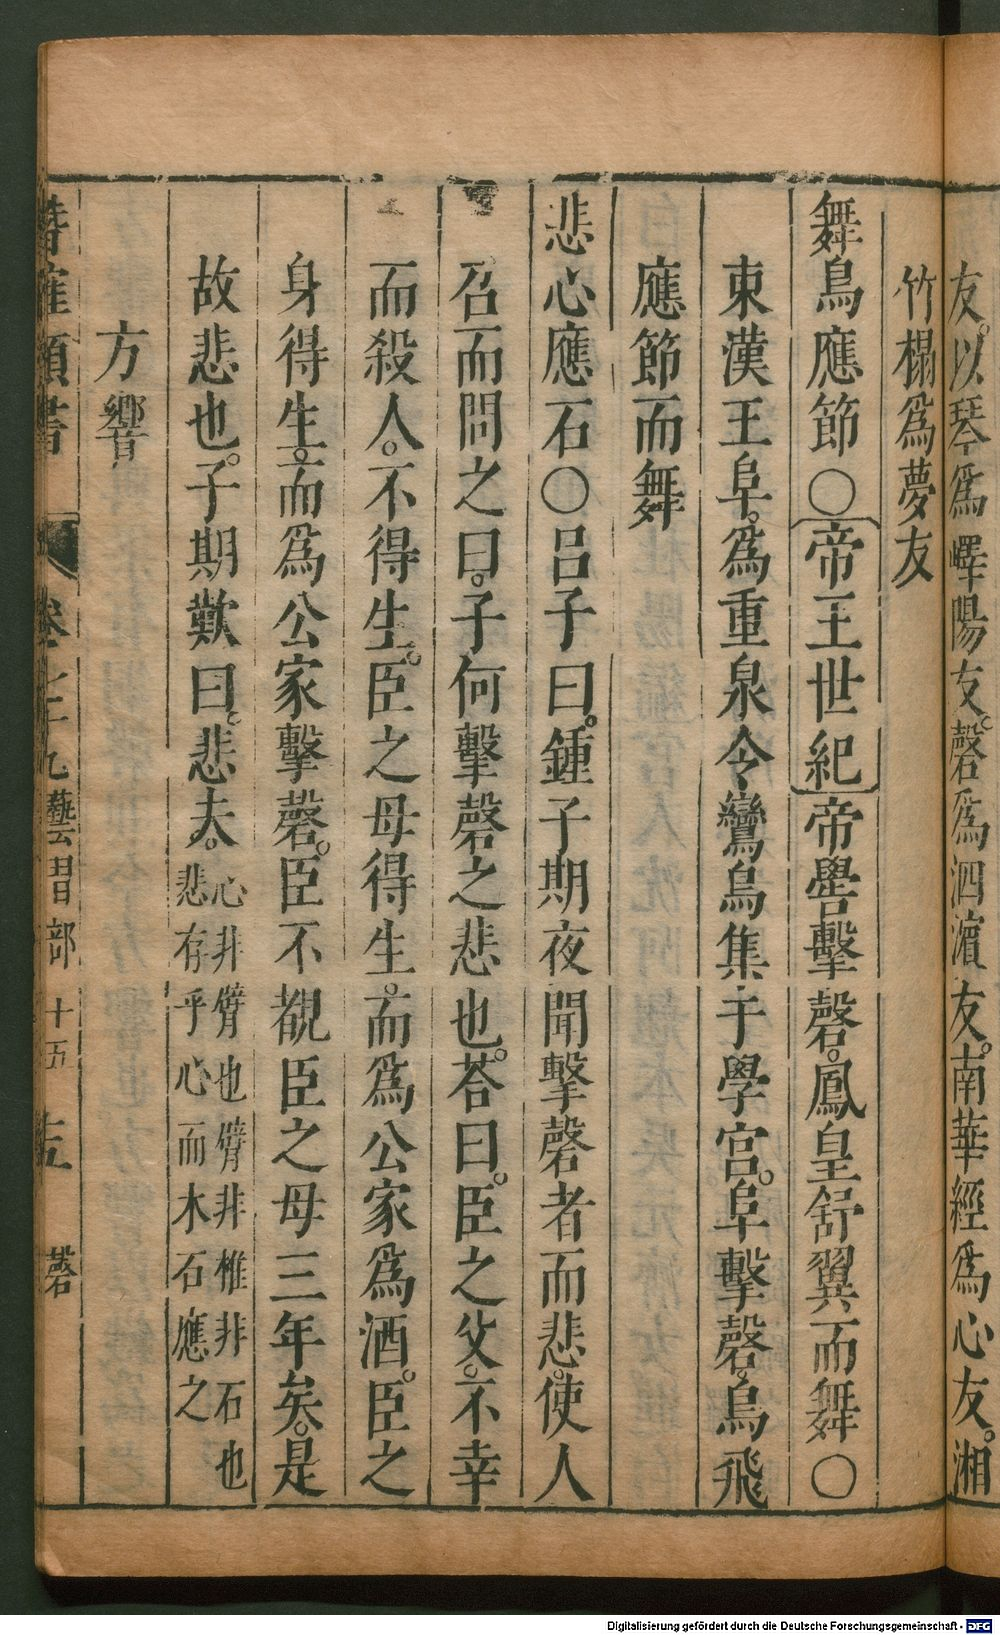 友。以琴爲嶧陽友。磬爲泗濵友。南華經爲心友。湘
竹榻爲夢友
舞鳥應節○帝王世紀帝嚳擊磬。鳳皇舒翼而舞○
東漢王阜。爲重泉令鸞鳥集于學宮。阜擊磬。鳥飛
應節而舞
悲心應石○呂子曰。鍾子期夜聞擊磬者而悲。使人
召而問之曰。子何擊磬之悲也。荅曰。臣之父。不幸
而殺人。不得生。臣之母得生。而爲公家爲酒。臣之
身得生。而爲公家擊磬。臣不覩臣之母三年矣。是
故悲也。子期歎曰。悲夫。心非臂也臂非椎非石也
悲有乎心而木石應之
方響
卷 九 藝習部 十五 磬
Digitalisierung gefördert durch die Deutsche Forschungsgemeinschaft - DFG